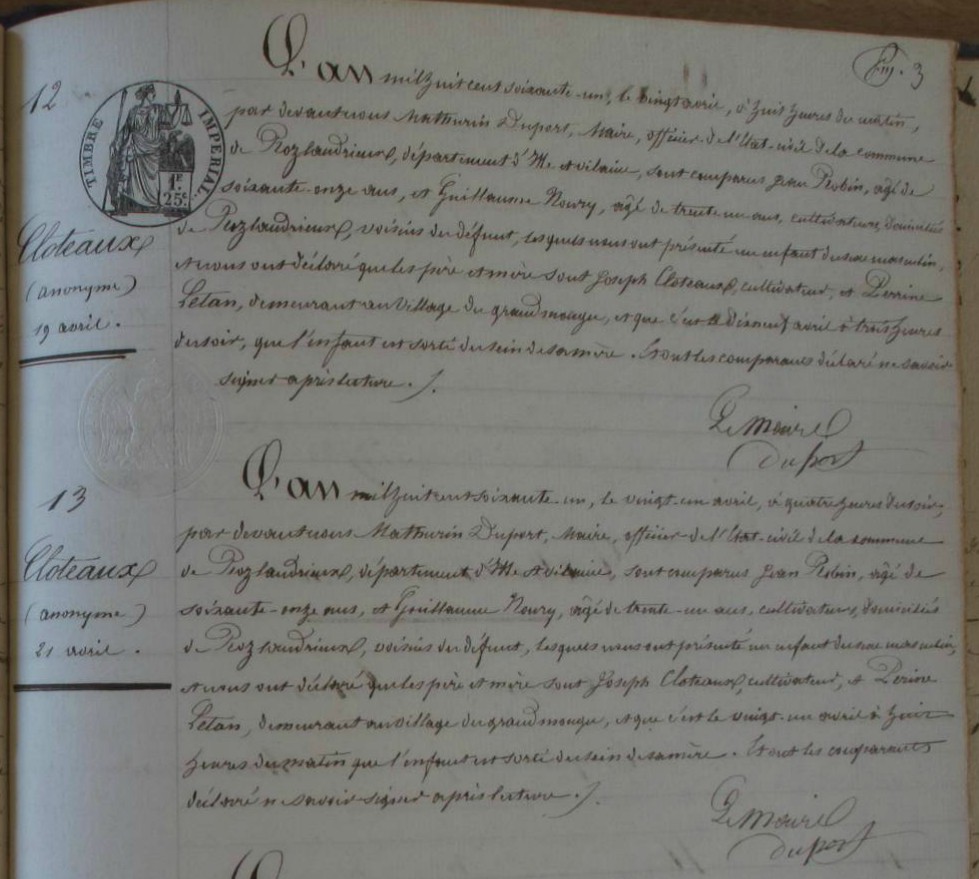 fig. 3
12
TIMBRE IMPERIAL
1F.
25c.
Cloteaux
(anonyme)
19 avril.
L'an mil huit cent soixante-un, le vingt avril, à huit heures du matin,
par devant nous Mathurin Duport, Maire, officier de l'Etat-civil de la commune
de Rozlandrieux, département d'Ille et vilaine, sont comparus Jean Robin, âgé de
soixante-onze ans, et Guillaume Noury, âgé de trente un ans, cultivateurs, domiciliés
de Rozlandrieux, voisins du défunt, lesquels nous ont présenté un enfant du sexe masculin,
et nous ont déclaré que les père et mère sont Joseph Cloteaux, cultivateur, et Perrine
Petan, demeurant au village du grand mougu, et que c'est le dixneuf avril à trois heures
du soir, que l'enfant est sorti du sein de sa mère. Et ont les comparants déclaré ne savoir
signer après lecture. /.
Le Maire
Duport
13
Cloteaux
(anonyme)
21 avril.
L'an mil huit cent soixante un, le vingt-un avril, à quatre heures du soir,
par devant nous Mathurin Duport, Maire, officier de l'Etat-civil de la commune
de Rozlandrieux, département d'Ille et vilaine, sont comparus Jean Robin, âgé de
soixante-onze ans, et Guillaume Noury, âgé de trente-un ans, cultivateurs, domiciliés
de Rozlandrieux, voisins du défunt, lesquels nous ont présenté un enfant du sexe masculin,
et nous ont déclaré que les père et mère sont Joseph Cloteaux, cultivateur, et Périne
Petan, demeurant au village du grand mougu, et que c'est le vingt-un avril à huit
heures du matin que l'enfant est sorti du sein de sa mère. Et ont les comparants
déclaré ne savoir signer après lecture. /.
Le Maire
Duport